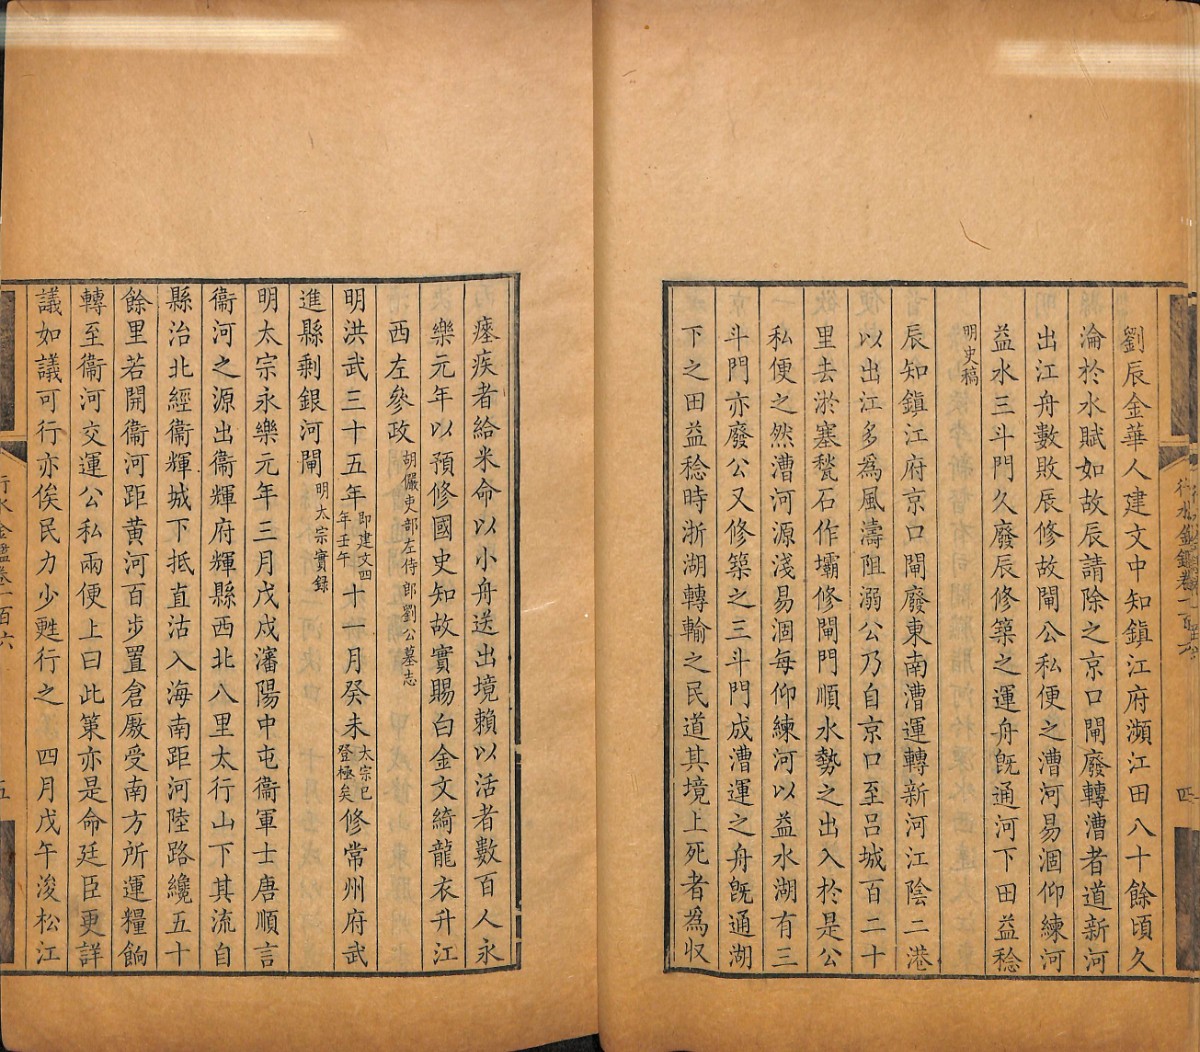 劉辰金華人建文中知鎮江府瀕江田八十餘頃久
淪於水賦如故辰請除之京口閘廢轉漕者道新河
出江舟數敗辰修故閘公私便之漕河易涸仰練河
益水三斗門久廢辰修築之運舟既通河下田益稔
明史稿
辰知鎮江府京口閘廢東南漕運轉新河江陰二港
以出江多為風濤阻溺公乃自京口至呂城百二十
里去淤塞甃石作壩修閘門順水勢之出入於是公
私便之然漕河源淺易涸每仰練河以益水湖有三
斗門亦廢公又修築之三斗門成漕運之舟既通湖
下之田益稔時浙湖轉輸之民道其境上死者為収
四
瘞疾者給米命以小舟送出境賴以活者數百人永
樂元年以預修國史知故實賜白金文綺龍衣升江
西左參政胡儼吏部左侍郎劉公墓志
明洪武三十五年即建文四年壬午十一月癸未太宗已登極矣修常州府武
進縣剩銀河閘明太宗實録
明太宗永樂元年三月戊戌瀋陽中屯衞軍士唐順言
衞河之源出衞輝府輝縣西北八里太行山下其流自
縣治北經衞輝城下抵直沽入海南距河陸路纔五十
餘里若開衞河距黄河百步置倉厫受南方所運糧餉
轉至衞河交運公私兩便上曰此策亦是命廷臣更詳
議如議可行亦俟民力少甦行之 四月戊午浚松江
行水金鑑卷一百六
五